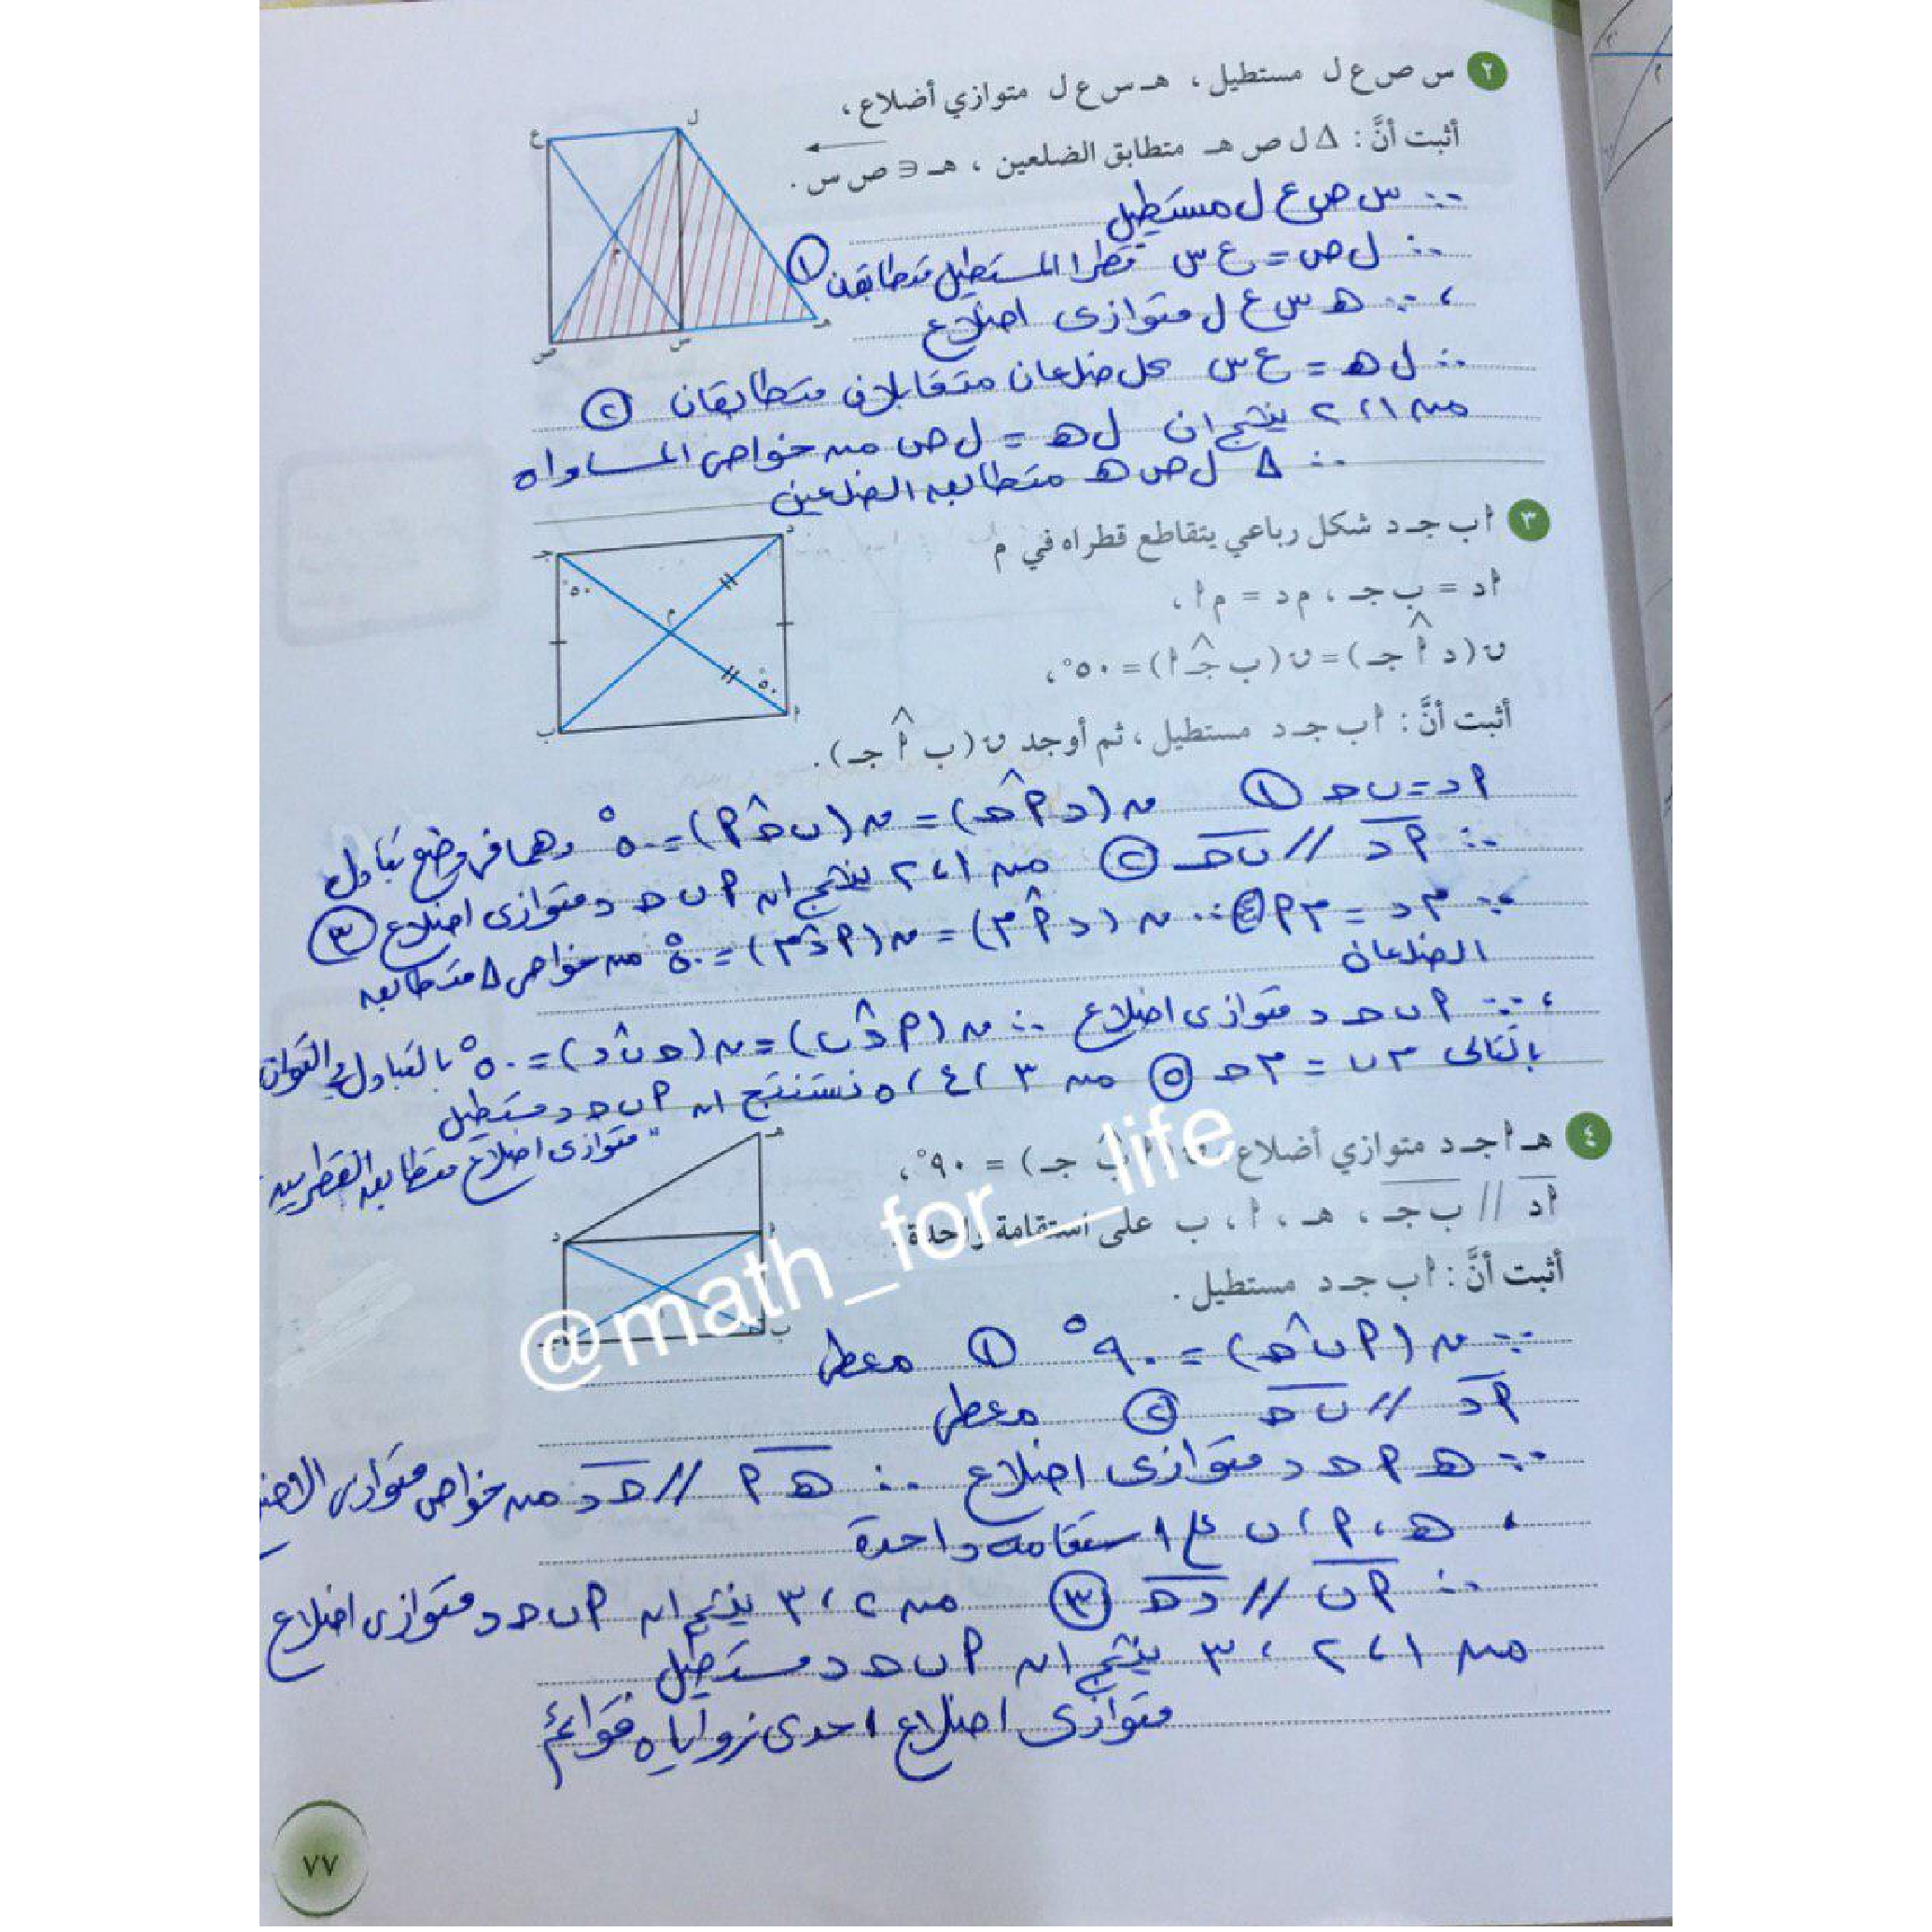 ٢ س ص ع ل مستطيل ، هـ س ع ل متوازي أضلاع ،
أثبت أنَّ : Δ ل ص هـ متطابق الضلعين ، هـ ∈ ص س .
∵ س ص ع ل مستطيل
∴ ل ص = ع س قطرا المستطيل متطابقان ١
، ∵ ه س ع ل متوازى اضلاع
∴ ل ه = ع س كل ضلعان متقابلان متطابقان ٢
من ١ ، ٢ ينتج ان ل ه = ل ص من خواص المساواه
∴ Δ ل ص ه متطابق الضلعين
ع ل
م
ص س هـ
٣ أ ب جـ د شكل رباعي يتقاطع قطراه في م
أد = ب جـ ، م د = م أ ،
ن (د أ̂ جـ) = ن (ب جـ̂ أ) = ٥٠° ،
أثبت أنَّ : أ ب جـ د مستطيل ، ثم أوجد ن (ب أ̂ جـ) .
جـ د
٥٠°
م
٥٠°
ب أ
أ د = ب ح ١ ن (د أ̂ ح) = ن (ب ح̂ أ) = ٥٠° وهما فى وضع تبادل
∴ أ د // ب ح ٢ من ١ ، ٢ ينتج ان أ ب ح د متوازى اضلاع ٣
، ∵ م د = م أ ٤ ∴ ن (د أ̂ م) = ن (أ د̂ م) = ٥٠° من خواص Δ متطابق
الضلعان
، ∵ أ ب ح د متوازى اضلاع ∴ ن (أ د̂ ب) = ن (ح ب̂ د) = ٥٠° بالتبادل
بالتالى م ب = م ح ٥ من ٣ ، ٤ ، ٥ نستنتج ان أ ب ح د مستطيل
" متوازى اضلاع متطابق القطرين
٤ هـ أ جـ د متوازي أضلاع ب̂ جـ) = ٩٠° ،
أد // ب جـ ، هـ ، أ ، ب على استقامة واحدة .
أثبت أنَّ : أ ب جـ د مستطيل .
هـ
د أ
ب
@math_for__life
∵ ن (أ ب̂ ح) = ٩٠° ١ معطى
أ د // ب ح ٢ معطى
∵ ه أ ح د متوازى اضلاع ∴ ه أ // ح د من خواص متوازى
، ه ، أ ، ب على استقامه واحدة
∴ أ ب // د ح ٣ من ٢ ، ٣ ينتج ان أ ب ح د متوازى اضلاع
من ١ ، ٢ ، ٣ ينتج ان أ ب ح د مستطيل
متوازى اضلاع احدى زواياه قوائم
٧٧